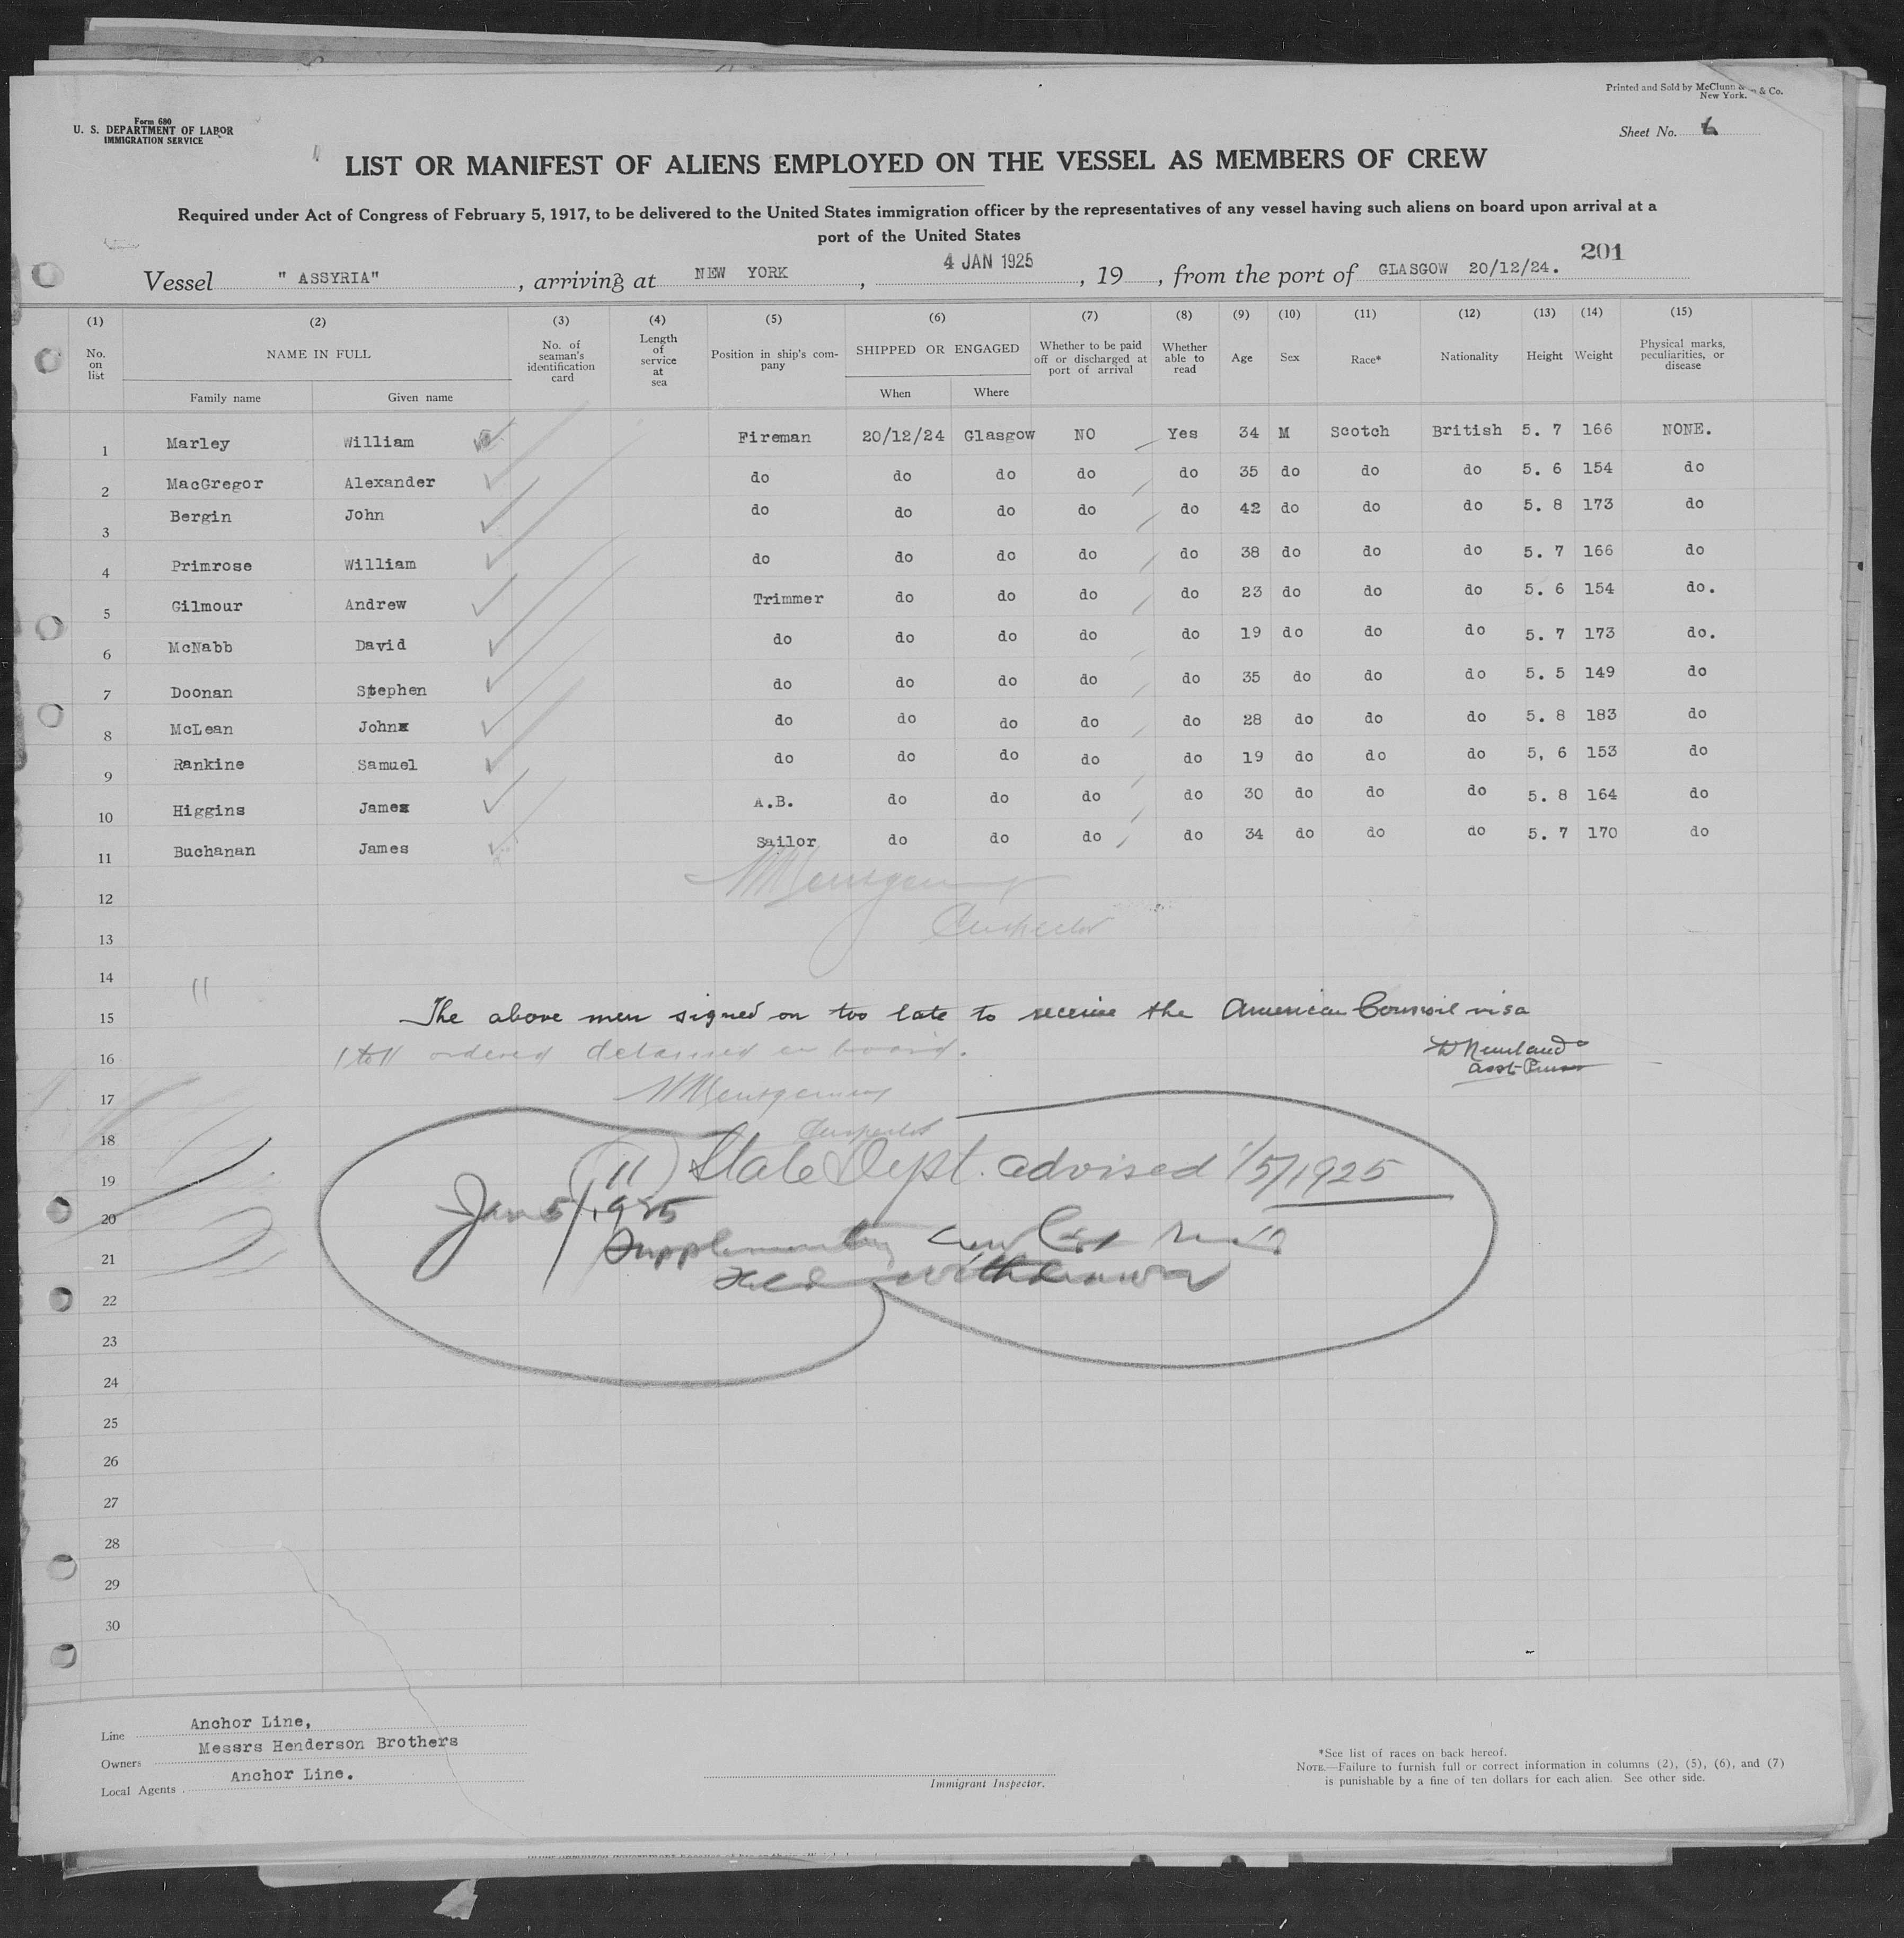 Printed and Sold by McClunn & Co.
New York.
Form 680
U. S. DEPARTMENT OF LABOR
IMMIGRATION SERVICE
Sheet No. 6
LIST OR MANIFEST OF ALIENS EMPLOYED ON THE VESSEL AS MEMBERS OF CREW
Required under Act of Congress of February 5, 1917, to be delivered to the United States immigration officer by the representatives of any vessel having such aliens on board upon arrival at a
port of the United States
201
Vessel " ASSYRIA" , arriving at NEW YORK , 4 JAN 1925 , 19 , from the port of GLASGOW 20/12/24.
(1) (2) (3) (4) (5) (6) (7) (8) (9) (10) (11) (12) (13) (14) (15)
No. on list NAME IN FULL Family name Given name No. of seaman's identification card Length of service at sea Position in ship's company SHIPPED OR ENGAGED When Where Whether to be paid off or discharged at port of arrival Whether able to read Age Sex Race* Nationality Height Weight Physical marks, peculiarities, or disease
1 Marley William Fireman 20/12/24 Glasgow NO Yes 34 M Scotch British 5. 7 166 NONE.
2 MacGregor Alexander do do do do do 35 do do do 5. 6 154 do
3 Bergin John do do do do do 42 do do do 5. 8 173 do
4 Primrose William do do do do do 38 do do do 5. 7 166 do
5 Gilmour Andrew Trimmer do do do do 23 do do do 5. 6 154 do.
6 McNabb David do do do do do 19 do do do 5. 7 173 do.
7 Doonan Stephen do do do do do 35 do do do 5. 5 149 do
8 McLean Johnx do do do do do 28 do do do 5. 8 183 do
9 Rankine Samuel do do do do do 19 do do do 5, 6 153 do
10 Higgins James A.B. do do do do 30 do do do 5. 8 164 do
11 Buchanan James Sailor do do do do 34 do do do 5. 7 170 do
12 Montgomery
13 Inspector
14 11
15 The above men signed on too late to receive the American Counsil visa
16 1 to 11 ordered detained on board.
W Newlands
Asst Purser
17 Montgomery
18 Inspector
19 (11) State Dept. advised 1/5/1925
20 Jan 5/1925
21 Supplementary crew list
withdrawn
22
23
24
25
26
27
28
29
30
Line Anchor Line,
Owners Messrs Henderson Brothers
Local Agents Anchor Line.
Immigrant Inspector.
*See list of races on back hereof.
NOTE.—Failure to furnish full or correct information in columns (2), (5), (6), and (7)
is punishable by a fine of ten dollars for each alien. See other side.